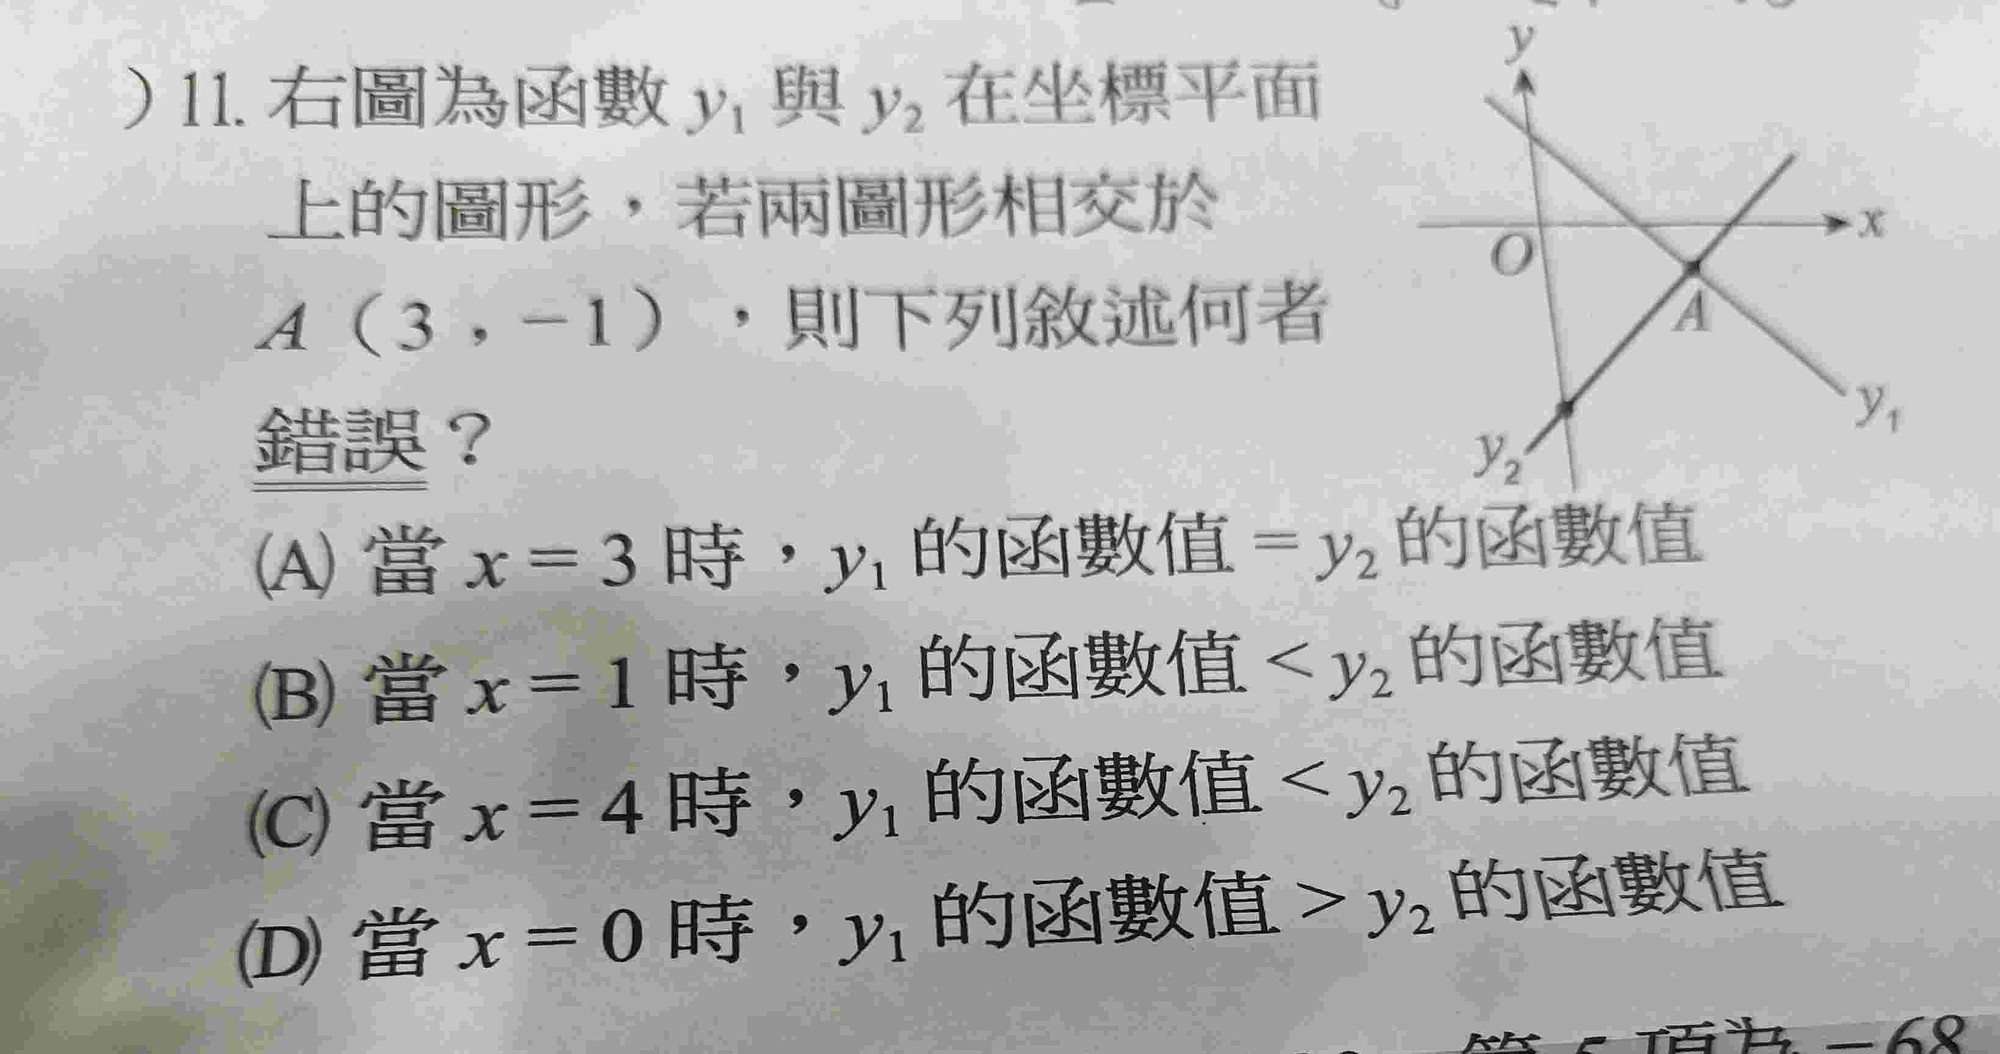 )11. 右圖為函數 y₁ 與 y₂ 在坐標平面
上的圖形，若兩圖形相交於
A（3，−1），則下列敘述何者
錯誤？
(A) 當 x = 3 時，y₁ 的函數值 = y₂ 的函數值
(B) 當 x = 1 時，y₁ 的函數值 < y₂ 的函數值
(C) 當 x = 4 時，y₁ 的函數值 < y₂ 的函數值
(D) 當 x = 0 時，y₁ 的函數值 > y₂ 的函數值
y
x
O
A
y₁
y₂
第 5 項為 −68